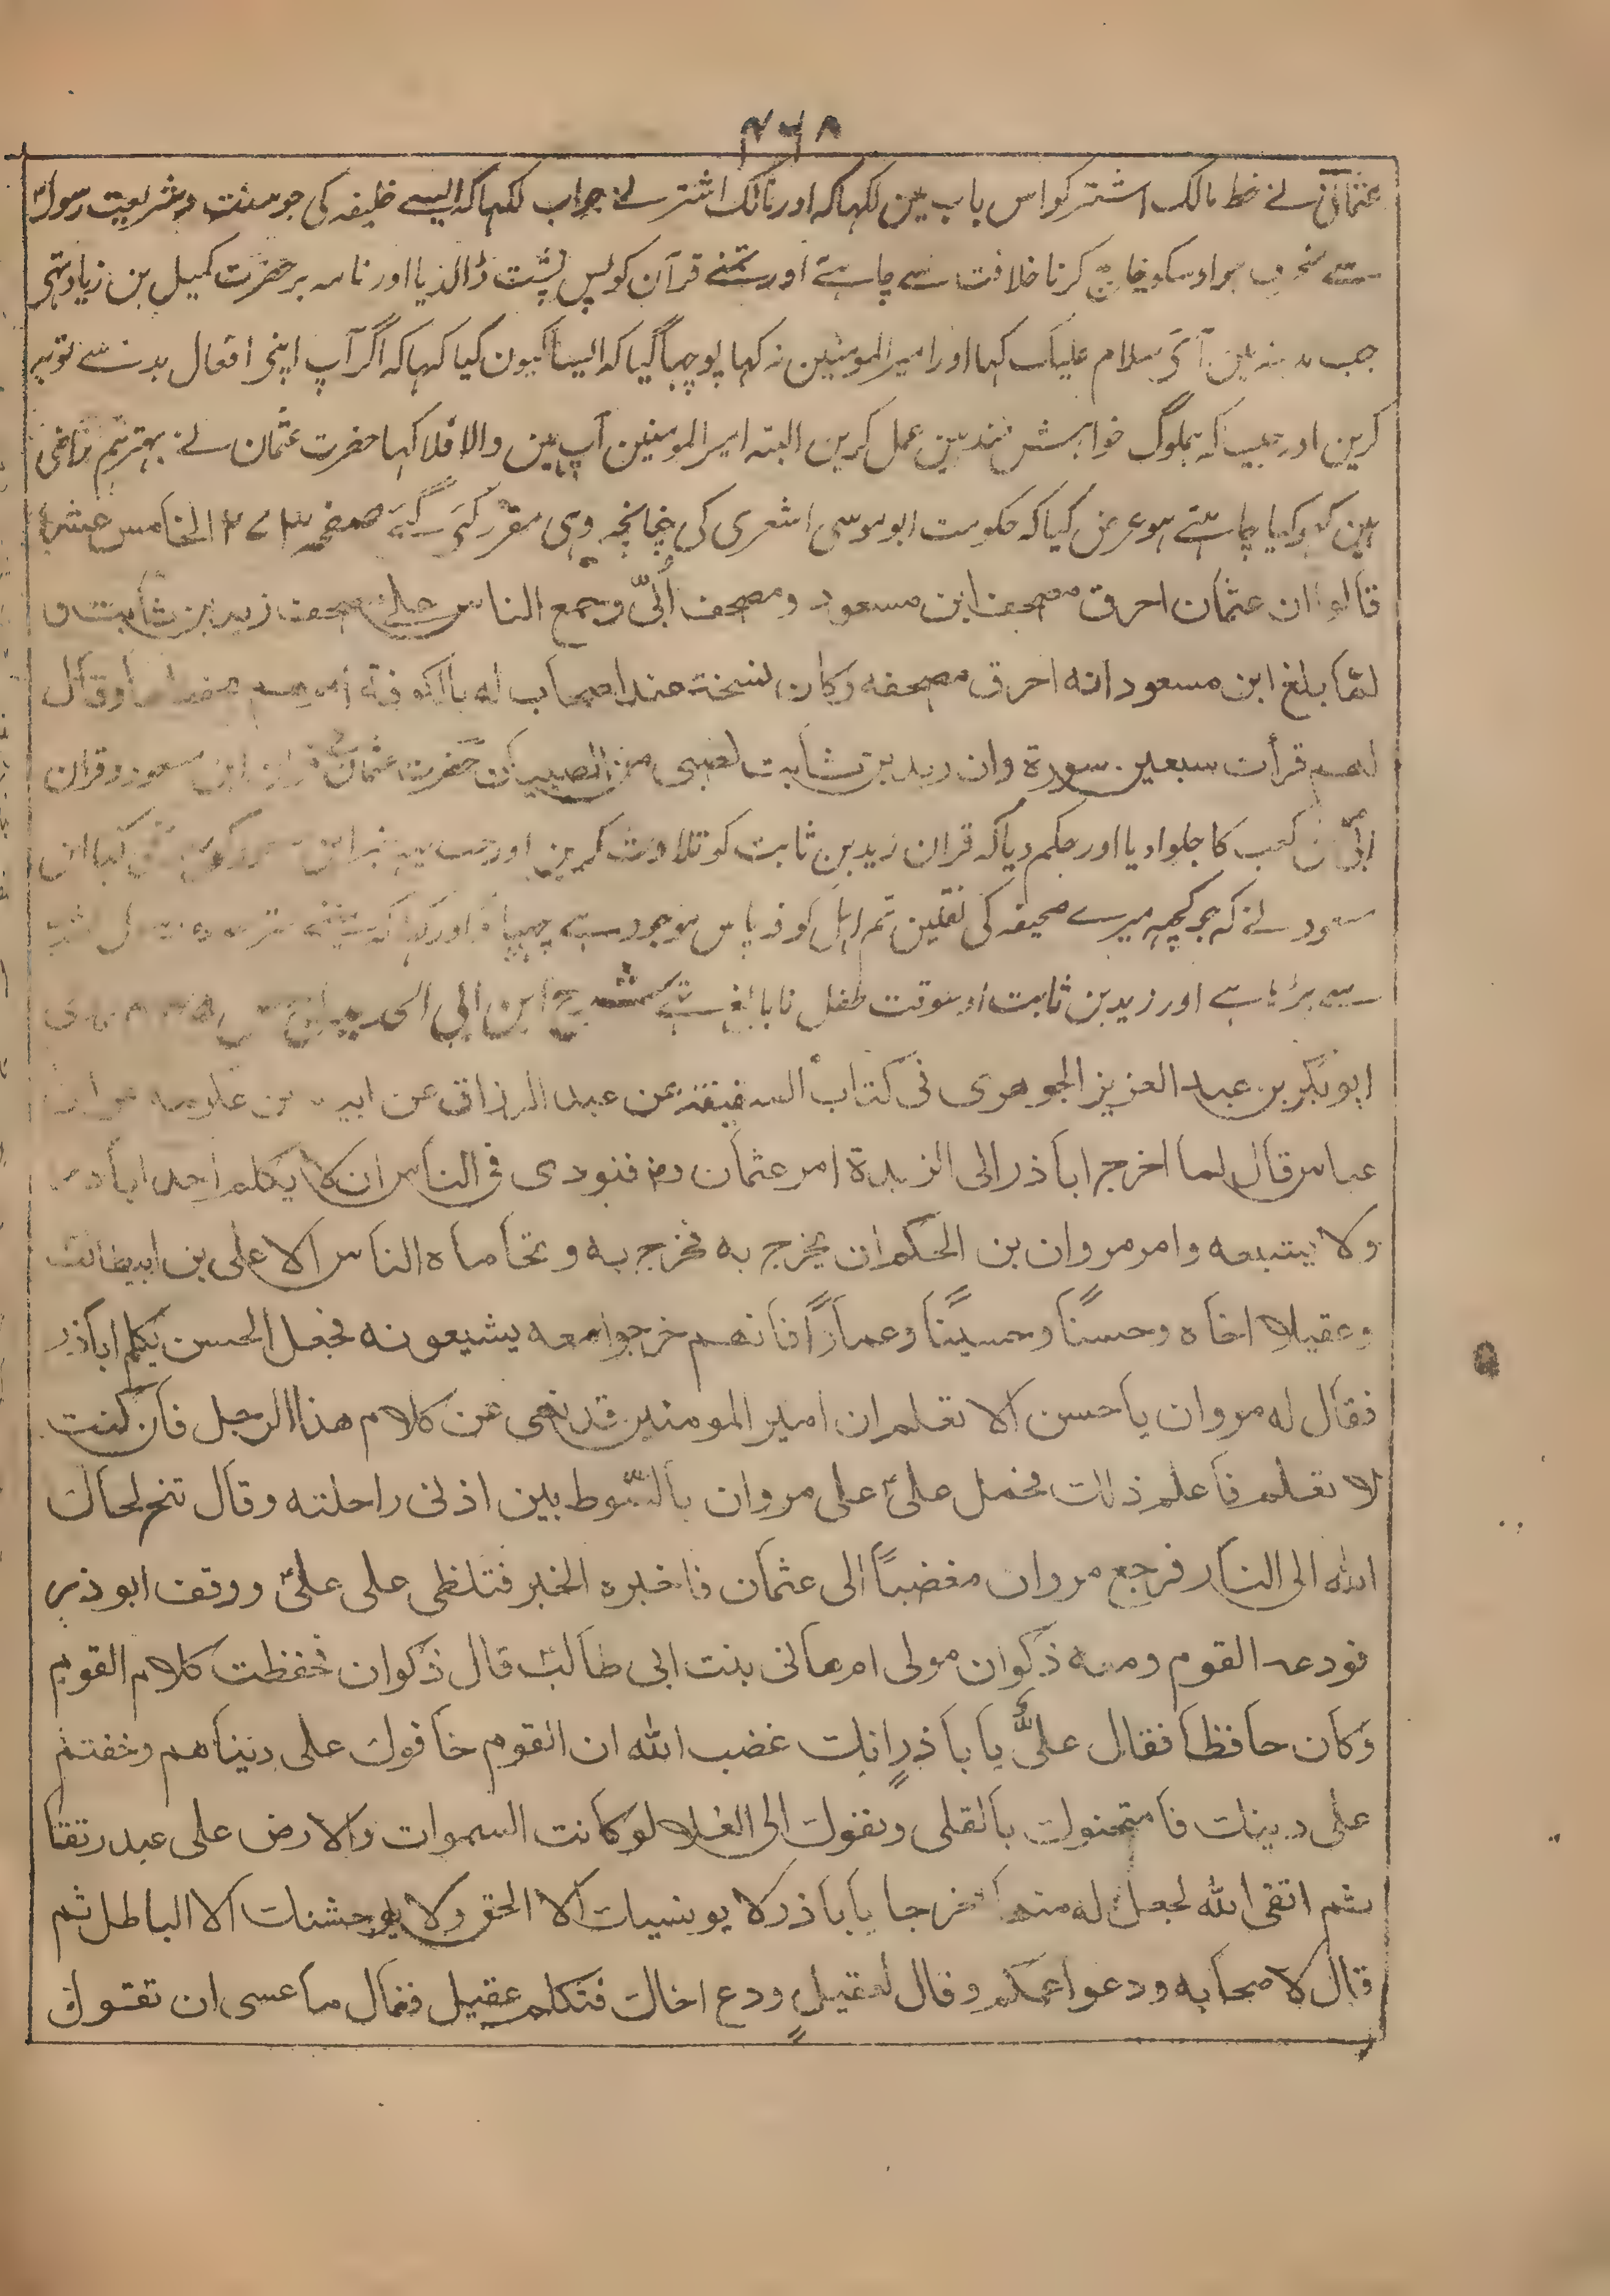 ۴۶۸
عثمان نے خط مالک اشتر کو اس باب مین لکہا کہ اور مالک اشتر نے جواب لکہا کہ ایسے خلیفہ کی جو سنت و شریعت رسول
سے منحرف ہو اوسکو خارج کرنا خلافت سے چاہئے اور تمنے قرآن کو پس پشت ڈالدیا اور نامہ بر حضرت کمیل بن زیاد تہی
جب مدینہ مین آئی سلام علیک کہا اور امیر المومنین نہ کہا پوچہا گیا کہ ایسا کیون کیا کہا کہ اگر آپ اپنی افعال بد سے توبہ
کرین اور جیسا کہ ہملوگ خواہشمند ہین عمل کرین البتہ امیر المومنین آپ ہین والا فلا کہا حضرت عثمان نے بہتر ہم راضی
ہین کہو کیا چاہتے ہو عرض کیا کہ حکومت ابو موسی اشعری کی چنانچہ وہی مقرر کئے گئے صفحہ ۲۷۳ الخامس عشر
قالوا ان عثمان احرق مصحف ابن مسعود ومصحف اُبیّ وجمع الناس علی مصحف زید بن ثابت و
لمّا بلغ ابن مسعود انه احرق مصحفه وکان نسخة عند اصحاب له بالکوفة وقال
لهم قرأت سبعین سورة وان زید بن ثابت لصبی من الصبیان حضرت عثمان نے قران ابن مسعود و قران
ابیّ بن کعب کا جلوا دیا اور حکم دیا کہ قران زید بن ثابت کو تلاوت کرین اور جب یہ خبر ابن مسعود کو کہا ابن
مسعود نے کہ جو کچہہ میرے صحیفہ کی نقلین تم اہل کوفہ پاس موجود ہے چہپاؤ اور کہا کہ
سے پڑہا ہے اور زید بن ثابت اوسوقت طفل نابالغ تہے شرح ابن ابی الحدید
ابو بکر بن عبد العزیز الجوهری فی کتاب السقیفة عن عبد الرزاق عن ابیه عن عکرمه عن ابن
عباس قال لما اخرج اباذر الی الربذة امر عثمان رض فنودی فی الناس ان لا یکلم احد اباذر
ولا یتبعه وامر مروان بن الحکم ان یخرج به فخرج به وتحاماه الناس الا علی بن ابیطالب
وعقیلا اخاه وحسناً وحسیناً وعماراً فانهم خرجوا معه یشیعونه فجعل الحسن یکلم اباذر
فقال له مروان یا حسن الا تعلم ان امیر المومنین قد نهی عن کلام هذا الرجل فان کنت
لا تعلم فاعلم ذلک فحمل علیؑ علی مروان بالسّوط بین اذنی راحلته وقال تنح لحاک
الله الی النار فرجع مروان مغضباً الی عثمان فاخبره الخبر فتلظی علی علیؑ ووقف ابوذر
فودعه القوم ومعه ذکوان مولی ام هانی بنت ابی طالب قال ذکوان فحفظت کلام القوم
وکان حافظا فقال علیؑ یا باذر انک غضب الله ان القوم خافوک علی دنیاهم وخفتم
علی دینک فامتحنوک بالقلی ونفوک الی الفلا لو کانت السموات والارض علی عبد رتقا
ثم اتقی الله لجعل له منها مخرجا یا باذر لا یونسیک الا الحق ولا یوحشنک الا الباطل ثم
قال لاصحابه ودعوا عمکم وقال لعقیل ودع اخاک فتکلم عقیل فقال ما عسی ان تقول